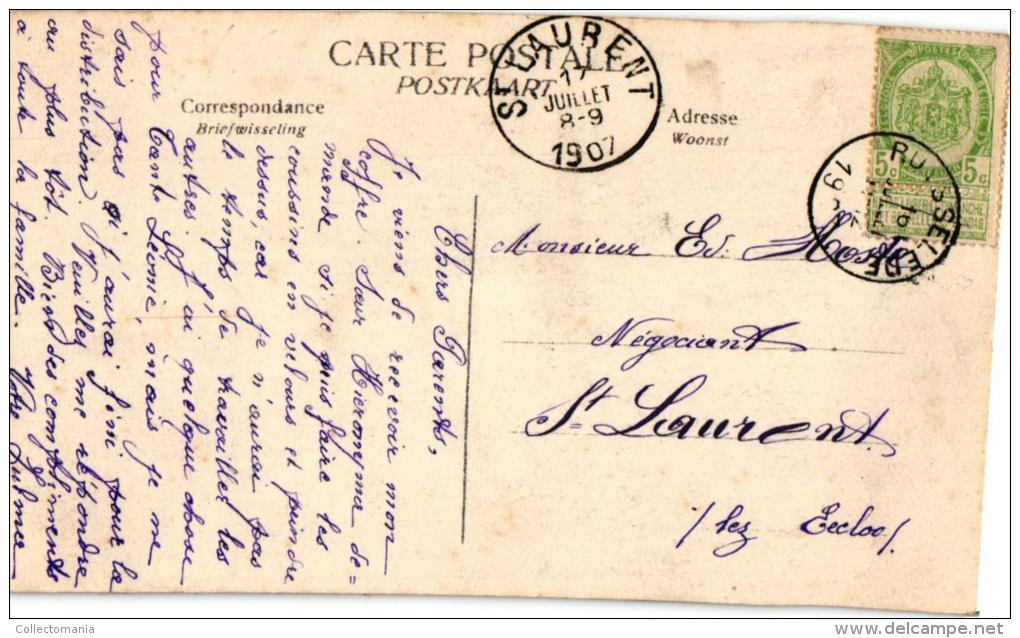 CARTE POSTALE
POSTKAART
Correspondance
Briefwisseling
Adresse
Woonst
ST LAURENT
17
JUILLET
8-9
1907
POSTES
5c 5c
RUYSSELEDE
19
Chers Parents,
Je viens de recevoir mon
coffre. Sœur Hieronyma de=
mande si je puis faire les
coussins en velours et peindre
dessus, car je n'aurai pas
le temps de travailler les
autres. J'ai quelque chose
pour Tante Léonie, mais je ne
sais pas si j'aurai fini pour la
distribution. Veuillez me répondre
au plus tôt. Bien des compliments
à toute la famille. Votre
Monsieur Ed.
Négociant
St Laurent
/lez Eecloo/
© Collectomania
delcampe.net